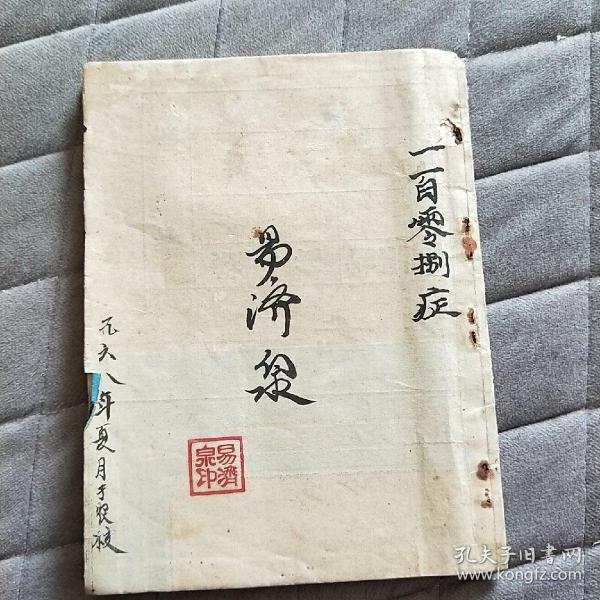 一百零捌症
易济泉
易濟
泉印
一九六八年夏月于农校
孔夫子旧书网
www.kongfz.com